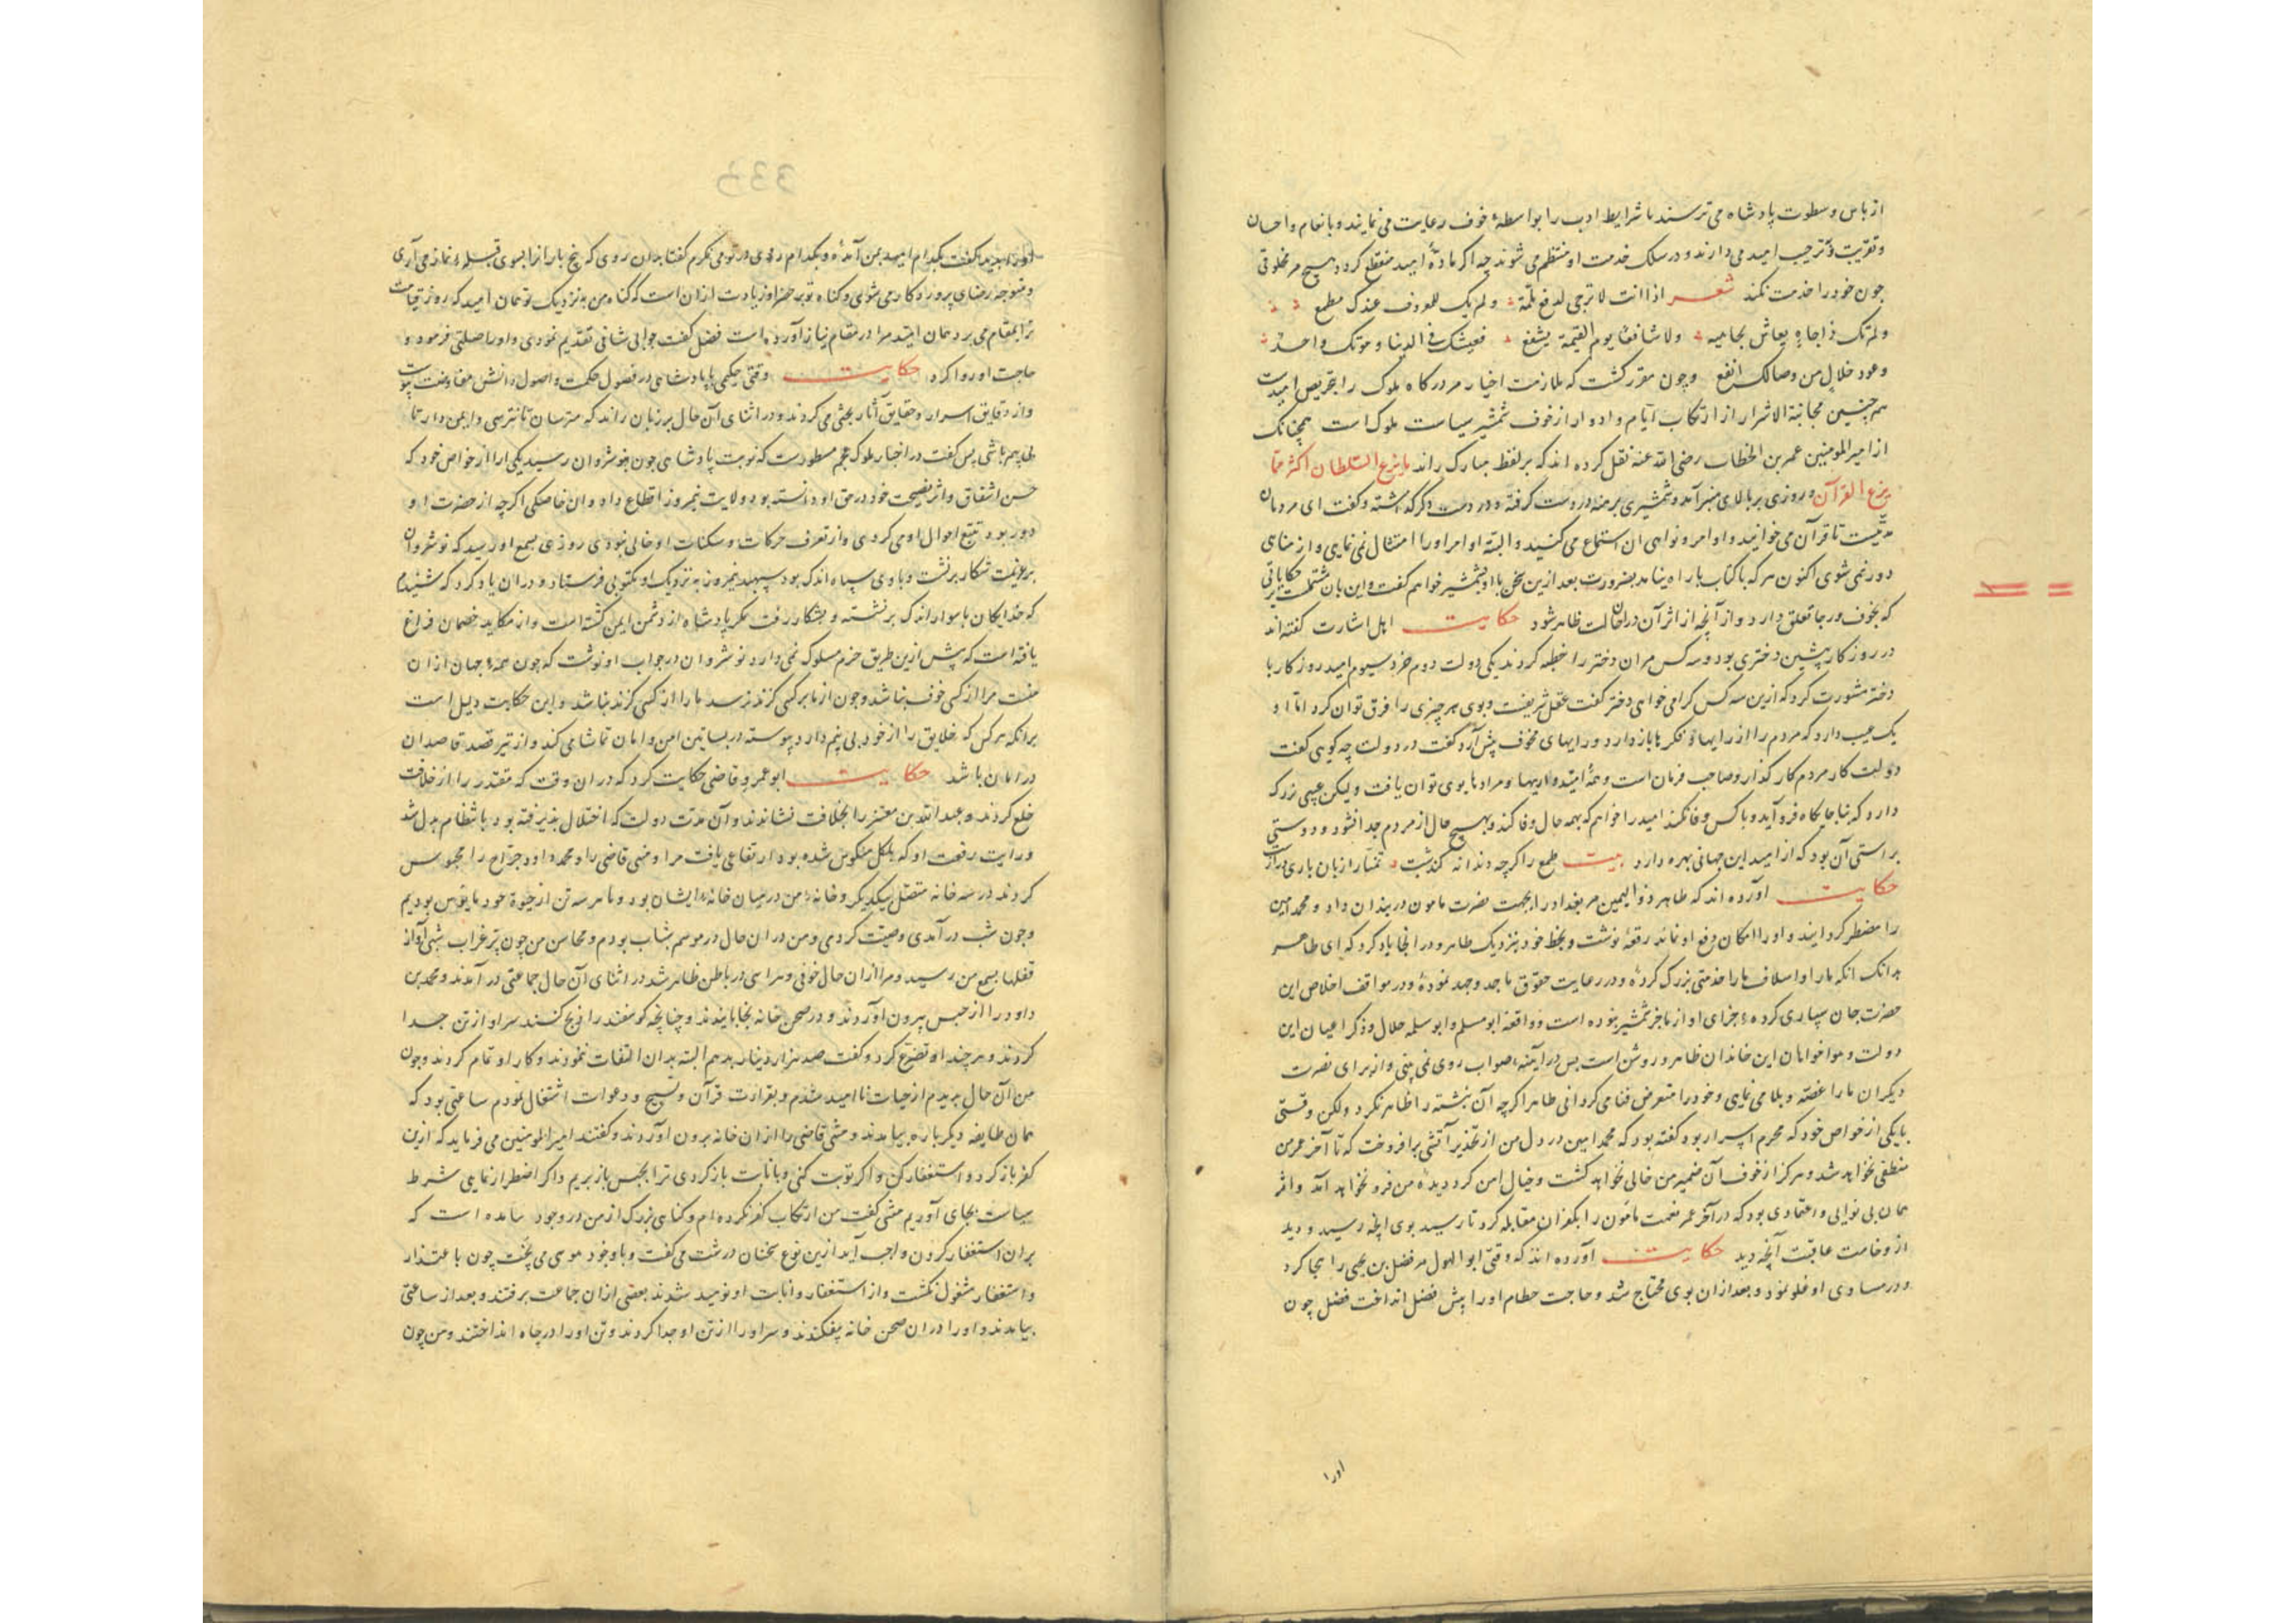 از باس و سطوت پادشاه می ترسند تا شرایط ادب را بواسطهٔ خوف رعایت می نمایند و بانعام و احسان
و تقریب و ترحیب امید می دارند و در سلک خدمت او منتظم می شوند چه اکر مادّهٔ امید منقطع کردد هیچ مخلوقی
چون خود را خدمت نکند شعر اذا انت لا ترجی لدفع ملمة ولم یک للمعروف عندک مطمع
ولم تک ذا جاه یعاش بجاهه ولا شافعا یوم القیمة یشفع فعیشک فی الدنیا و موتک واحد
وعود خلال من وصالک انفع و چون مقرر کشت که ملازمت اخیار مر درکاه ملوک را بتحریض امیدست
همچنین مجانبة الاشرار از ارتکاب آثام و اوزار از خوف شمشیر سیاست ملوک است همچنانک
از امیر المومنین عمر بن الخطاب رضی الله عنه نقل کرده اند که بر لفظ مبارک راند ما یزع السلطان اکثر مما
یزع القرآن و روزی بر بالای منبر آمد و شمشیری برهنه در دست کرفته و در دست دکر کذاشته و کفت ای مردمان
مدتیست تا قرآن می خوانید و اوامر و نواهی آن استماع می کنید و البته اوامر او را امتثال نمی نمایی و از مناهی
دور نمی شوی اکنون هر که با کتاب با راه نیامد بضرورت بعد ازین سخن با او بشمشیر خواهم کفت و این باب مشتملست بر حکایاتی
که بخوف و رجا تعلق دارد و از آنچه از اثر آن در ان حالت ظاهر شود حکایت اهل اشارت کفته اند
در روزکار پیشین دختری بود و سه کس مر ان دختر را خطبه کردند یکی دولت دوم خرد سیوم امید روزکار با
دختر مشورت کرد که ازین سه کس کرا می خواهی دختر کفت عقل شریفست و بوی هر چیزی را فرق توان کرد اما او
یک عیب دارد که مردم را از رایها و فکرها باز دارد و رایهای مخوف پیش آرد کفت در دولت چه کویی کفت
دولت کار مردم کار کذار و صاحب فرمان است و همهٔ امیدواریها و مرادها بوی توان یافت و لیکن عیبی بزرک
دارد که بنا جایکاه فرو آید و با کس وفا نکند امید را خواهم که بهمه حال وفا کند و بهیچ حال از مردم جدا نشود و دوستی
براستی آن بود که از امید این جهانی بهره دارد بیت طمع را کرچه دندانه کندست
حکایت آورده اند که طاهر ذو الیمین مر بغداد را بجهت نصرت مامون در بندان داد و محمد امین
را مضطر کردانید و او را امکان دفع او نماند رقعهٔ نوشت و بخط خود بنزدیک طاهر و در انجا یاد کرد که ای طاهر
بدانک انکه ما را و اسلاف ما را خدمتی بزرک کردهٔ و در رعایت حقوق ما جد و جهد نمودهٔ و در مواقف اخلاص این
حضرت جان سپاری کردهٔ جزای او از ما جز شمشیر نبوده است و واقعهٔ ابو مسلم و ابو سلمه خلال و ذکر اعیان این
دولت و هوا خواهان این خاندان ظاهر و روشن است بس در آیینهٔ صواب روی نمی بینی و از برای نصرت
دیکران ما را غصه و بلا می نمایی و خود را متعرض فنا می کردانی طاهر اکرچه آن نبشته را ظاهر نکرد ولکن وقتی
با یکی از خواص خود که محرم اسرار بود کفته بود که محمد امین در دل من از تحذیر آتشی برافروخت که تا آخر عمر من
منطفی نخواهد شد و هرکز از خوف آن ضمیر من خالی نخواهد کشت و خیال امن کرد دیدهٔ من فرو نخواهد آمد و اثر
همان بی نوایی و اعتمادی بود که در آخر عمر نعمت مامون را بکفران مقابله کرد تا رسید بوی انچه رسید و دید
از وخامت عاقبت آنچه دید حکایت آورده اند که وقتی ابو الهول مر فضل بن یحیی را هجا کرد
و در مساوی او غلو نمود و بعد ازان بوی محتاج شد و حاجت حطام او را پیش فضل انداخت فضل چون
اورا
او را بدید کفت بکدام امید بمن آمدهٔ و بکدام روی در تو می نکرم کفتا بدان روی که پنج بار انرا بسوی قبلهٔ نماز می آری
و متوجه رضای پروردکار می شوی و کناه تو بر حضر او زیادت ازان است که کناه من به نزدیک تو همان امید که روز قیامت
ترا بمقام می برد همان امید مرا در مقام نیاز آورده است فضل کفت جوابی شافی تقدیم نمودی و او را صلتی فرمود و
حاجت او روا کرد حکایت وقتی حکیمی با پادشاهی در فصول حکمت و اصول دانش مفاوضت پیوست
و از دقایق اسرار و حقایق آثار بحثی می کردند و در اثنای آن حال بر زبان راند که مترسان تا نترسی و ایمن دار تا
بس کفت در اخبار ملوک عجم مسطورست که نوبت پادشاهی چون بنوشروان رسید یکی را از خواص خود که
حسن اشفاق و اثر نصیحت خود در حق او دانسته بود ولایت نیمروز اقطاع داد و ان خاصکی اکرچه از حضرت او
دور بود تتبع احوال او می کردی و از تعرف حرکات و سکنات او خالی نبودی روزی بسمع او رسید که نوشروان
بر عزیمت شکار بر نشست و با وی سپاه اندک بود سپهبد نیمروز به نزدیک او مکتوبی فرستاد و دران یاد کرد که شنیدم
که خدایکان با سوار اندک بر نشسته و بشکار رفت مکر پادشاه از دشمن ایمن کشته است و از مکاید خصمان فراغ
یافته است که پیش ازین طریق حزم مسلوک نمی دارد نوشروان در جواب او نوشت که چون همهٔ جهان از ان
منست مرا از کسی خوف نباشد و چون از ما بر کسی کزند نرسد ما را از کسی کزند نباشد و این حکایت دلیل است
برانکه هر کس که خلایق را از خود بی بیم دارد پیوسته در بساتین امن و امان تماشا می کند و از تیر قصد قاصدان
در امان باشد حکایت ابو عمرو قاضی حکایت کرد که دران وقت که مقتدر را از خلافت
خلع کردند و عبد الله بن معتز را بخلافت نشاندند و آن مدت دولت که اختلال پذیرفته بود بانتظام بدل شد
و رایت رفعت او که بلکل منکوس شده بود ارتفاعی یافت مرا و مثنی قاضی را و محمد داود جراح را محبوس
کردند در سه خانه متصل بیکدیکر و خانهٔ من در میان خانهٔ ایشان بود و ما هر سه تن از حیوة خود مایوس بودیم
و چون شب در آمدی وصیت کردمی و من دران حال در موسم شباب بودم و محاسن من چون پر غراب شبی آواز
قفلها بسمع من رسید و مرا ازان حال خوفی و هراسی در باطن ظاهر شد در اثنای آن حال جماعتی در آمدند و محمد بن
داود را از حبس بیرون آوردند و در صحن خانه بخوابانیدند و چنانچه کوسفند را ذبح کنند سر او از تن جدا
کردند و هر چند او تضرع کرد و کفت صد هزار دینار بدهم البته بدان التفات ننمودند و کار او تمام کردند و چون
من آن حال بدیدم از حیات ناامید شدم و بقراءت قرآن و تسبیح و دعوات اشتغال نمودم ساعتی بود که
همان طایفه دیکر باره بیامدند و مثنی قاضی را ازان خانه برون آوردند و کفتند امیر المومنین می فرماید که ازین
کفر باز کرد و استغفار کن و اکر توبت کنی و بانابت باز کردی ترا بحبس باز بریم و اکر اضطرار نمایی شرط
سیاست بجای آوریم مثنی کفت من ارتکاب کفر نکرده ام و کناهی بزرک از من در وجود نیامده است که
بران استغفار کردن واجب آید ازین نوع سخنان درشت می کفت و با وجود هوسی می پخت چون باعتذار
و استغفار مشغول نکشت و از استغفار و انابت او نومید شدند بعضی ازان جماعت برفتند و بعد از ساعتی
بیامدند و او را دران صحن خانه بیفکندند و سر او را از تن او جدا کردند و تن او را در چاه انداختند و من چون